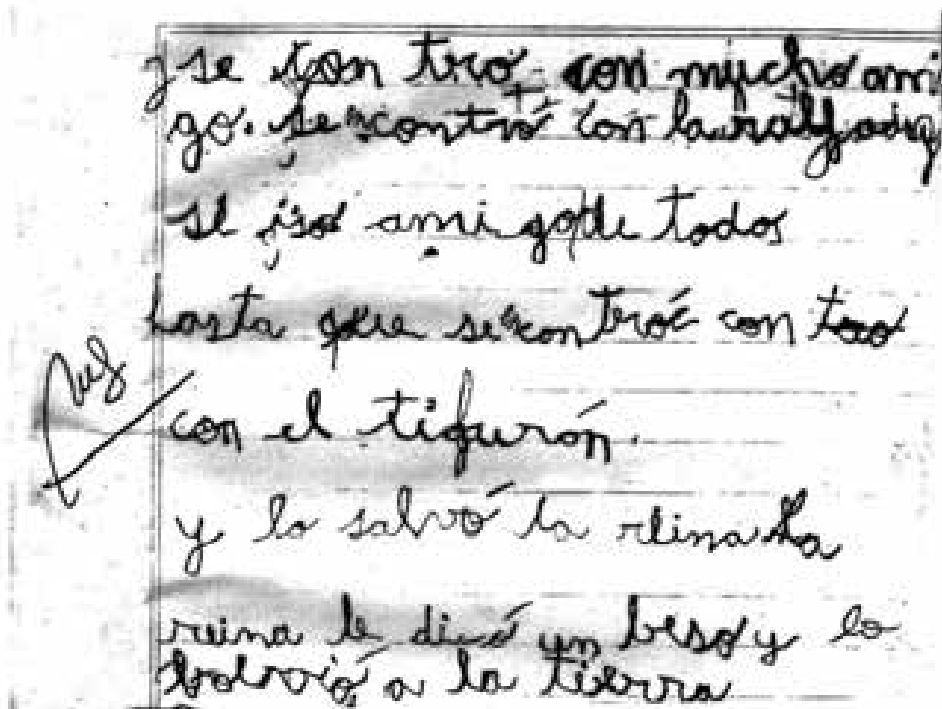 y se con tró con mucho ami
go. se encontró con la
se iso amigo de todos
hasta que se encontró con
con el tigurón.
y lo salvó la reina la
reina le dió un beso y lo
bolvió a la tierra